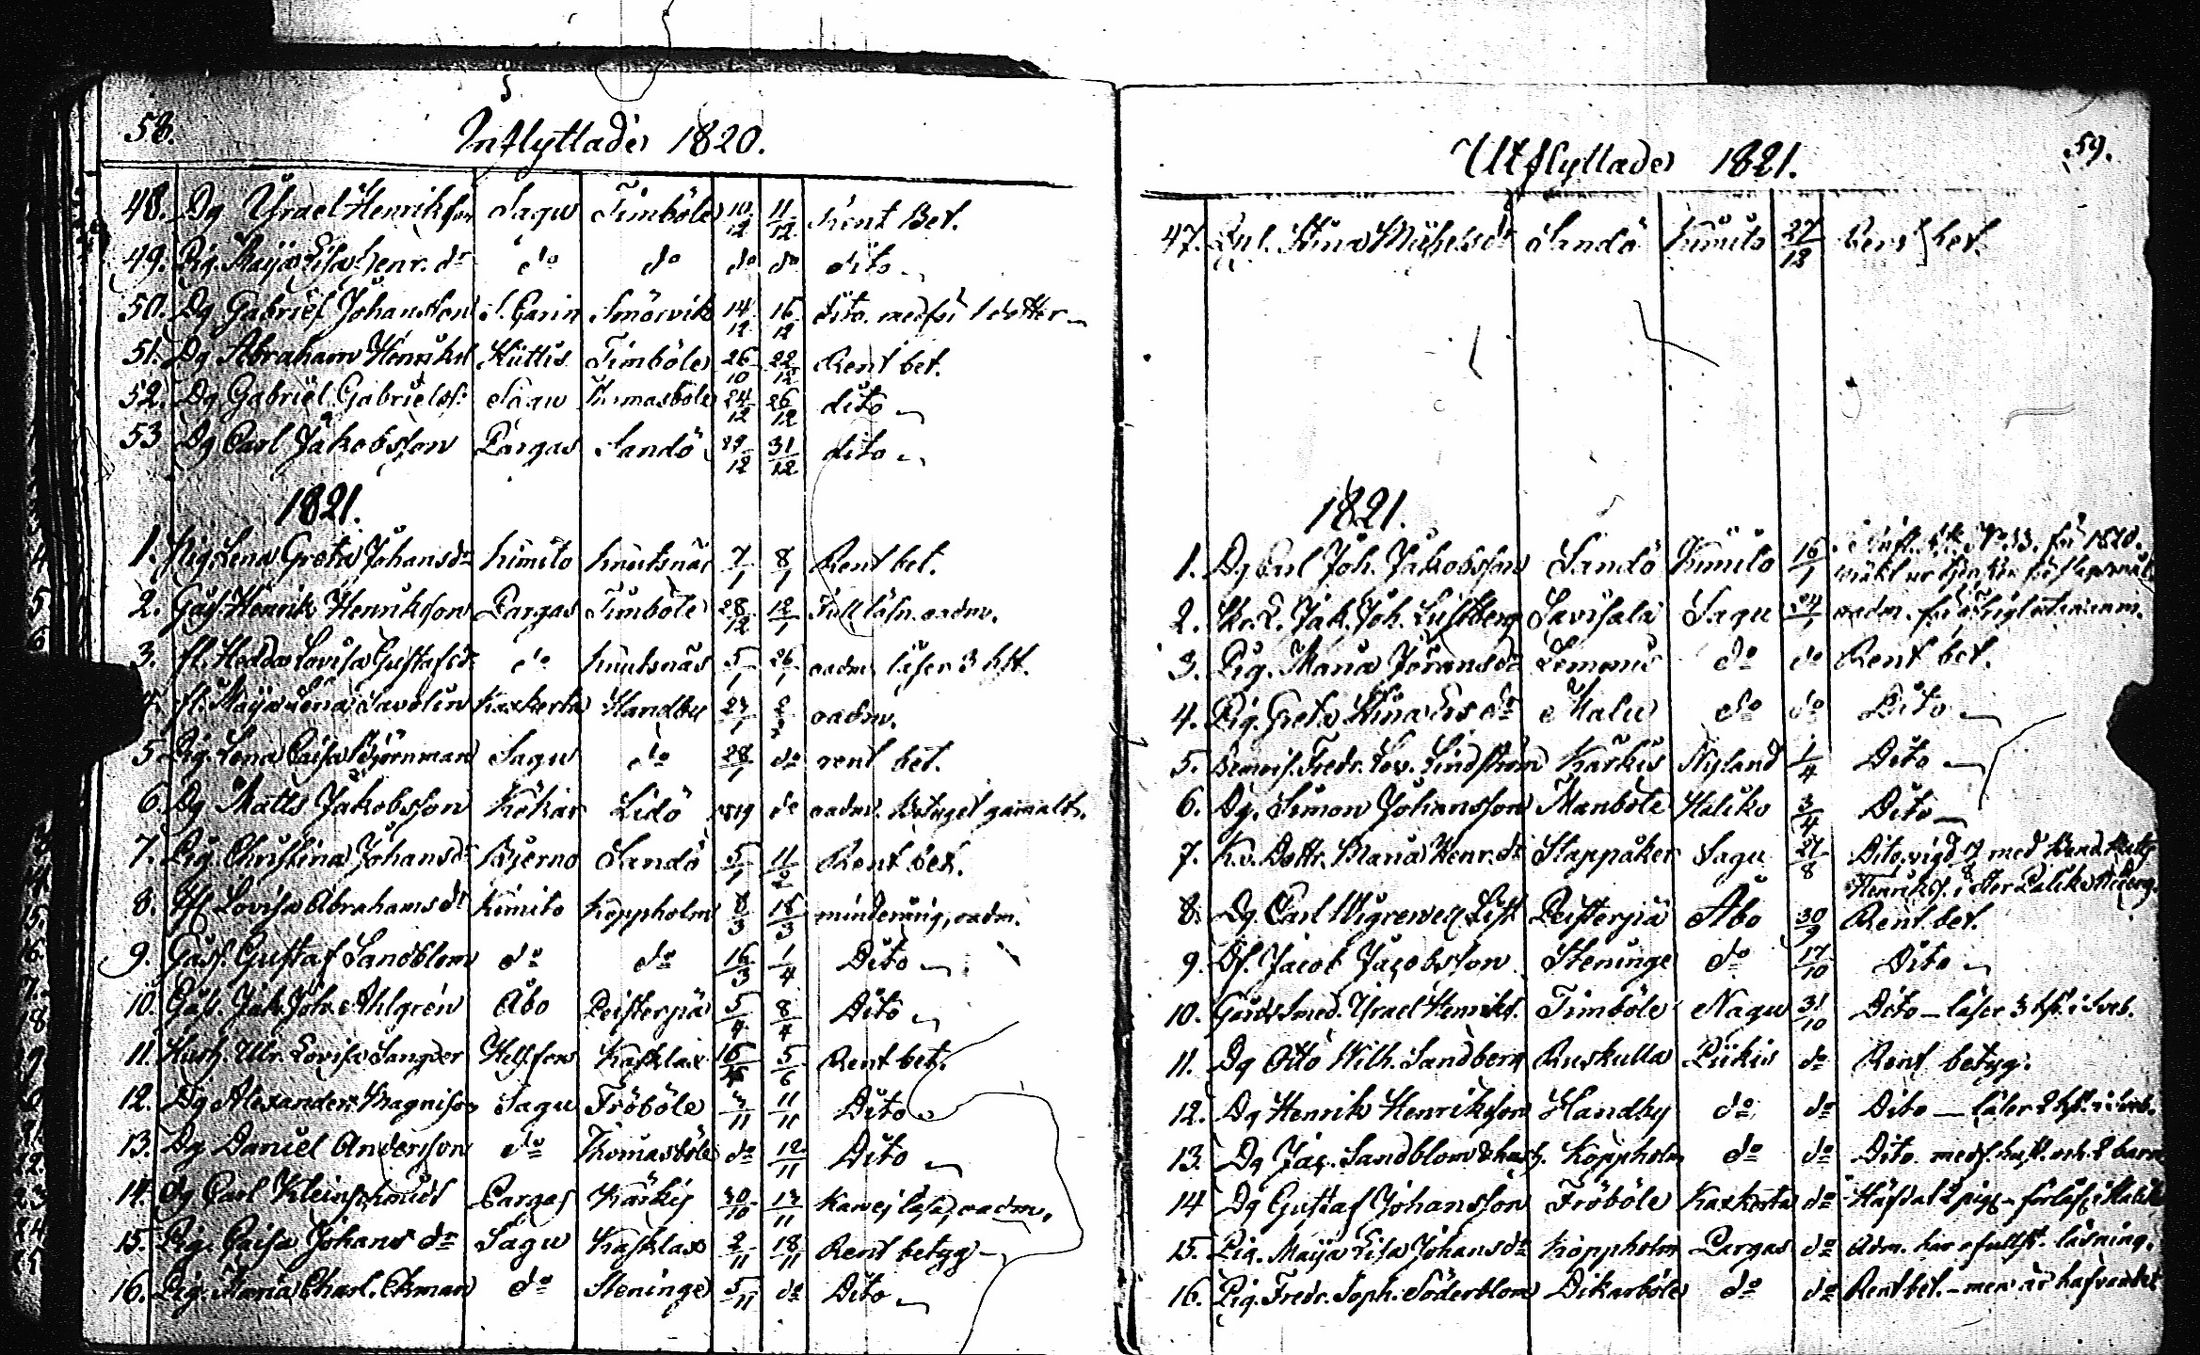 58.
Inflyttade 1820.
48. Dg Israel Henriksson Sagu Timböle 10/12 11/12 Rent Bet.
49. Pig. Maija Lisa Henr. dr do do do do dito
50. Dg Gabriel Johansson S. Carin Smörvik 14/12 16/12 dito. 1 dotter
51. Dg Abraham Henrikss Hittis Timböle 26/10 22/12 Rent bet.
52. Dg Gabriel Gabrielss: Sagu Thomasböle 24/12 26/12 dito
53 Dg Carl Jakobsson Pargas Sandö 29/12 31/12 dito
1821.
1. Pig. Lena Greta Johansdr Kimito Knutsnäs 7/1 8/1 Rent bet.
2. Gäs. Henrik Henriksson Pargas Timböle 28/12 12/1 oadm.
3. fl. Hedda Lovisa Gustafsdr do Knutsnäs 5/1 26/1 oadm. läser 3 hst.
4. fl. Maija Lena Savolin Kaxkerta Handby 27/1 2/2 oadm.
5 Pig. Lena Caisa Björnman Sagu do 28/1 do rent bet.
6. Dg Matts Jakobsson Kökar Lidö 1819 do oadm. Betyget gamalt.
7. Pig. Christina Johansdr Bjerno Sandö 5/1 11/2 Rent bet.
8. Lovisa Abrahamsdr Kimito Koppholm 8/3 18/3 oadm.
9. Gäs. Gustaf Sandblom do do 16/3 1/4 Dito
10. Gäs. Jak. Joh. Ahlgren Åbo Peisterpiä 5/4 8/4 Dito
11. Hush. Ulr. Lovisa Helsfors Kasklax 5/6 Rent bet.
12. Dg Alexander Magnison Sagu Fröböle 11/11 Dito
13. Dg Daniel Andersson do Thomasböle do 12/11 Dito
14. Dg Carl Kleinschmidt Pargas Kärkis 30/10 13/11 Kan ej läsa, oadm.
15. Pig. Caisa Johans dr Sagu Kasklax 2/11 18/11 Rent betyg
16. Pig. Maria Charl. Ekman do Steninge 5/11 do Dito
59.
Utflyttade 1821.
47. Stina Michelsdr Sandö Kimito 27/12 Rent bet.
1821.
1. Dg Carl Joh. Jakobsson Sandö Kimito 16/1
2. Jak. Joh. Liljeberg Savisala Sagu oadm.
3. Pig. Maria Joransdr Lemonis do do Rent bet.
4. Pig. Greta Stina Ers dr Malu do do Dito
5. Demois. Fredr. Lov. Lindström Kärkis Nyland 1/4 Dito
6. Dg. Simon Johansson Manböle Haliko 3/4 Dito
7. Maria Henr. dr Slappåker Sagu 21/8 Dito, vigd med
8. Dg. Carl Peisterpiä Åbo 30/9 Rent bet.
9. Jacob Jacobsson Steninge do 17/10 Dito
10. Israel Henriks. Timböle Nagu 31/10 Dito – läser
11. Dg Otto Wilh. Sandberg Ruskulla Piikis do Rent betyg.
12. Dg Henrik Henriksson Handby do do Dito – läser
13. Dg Jac. Sandblom Koppholm do do Dito. och 2 barn
14 Dg Gustaf Johansson Fröböle Kaxkerta do
15. Pig. Maija Lisa Johansdr Koppholm Pargas do Adm. läsning.
16. Pig. Fredr. Soph. Söderblom Dikarböle do do Rent bet. – men är hafvande